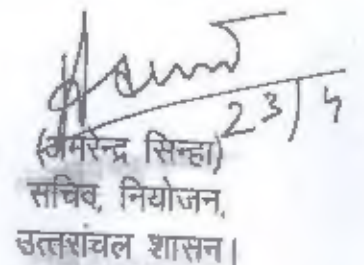 23/4
(अमरेन्द्र सिन्हा)
सचिव, नियोजन,
उत्तरांचल शासन।